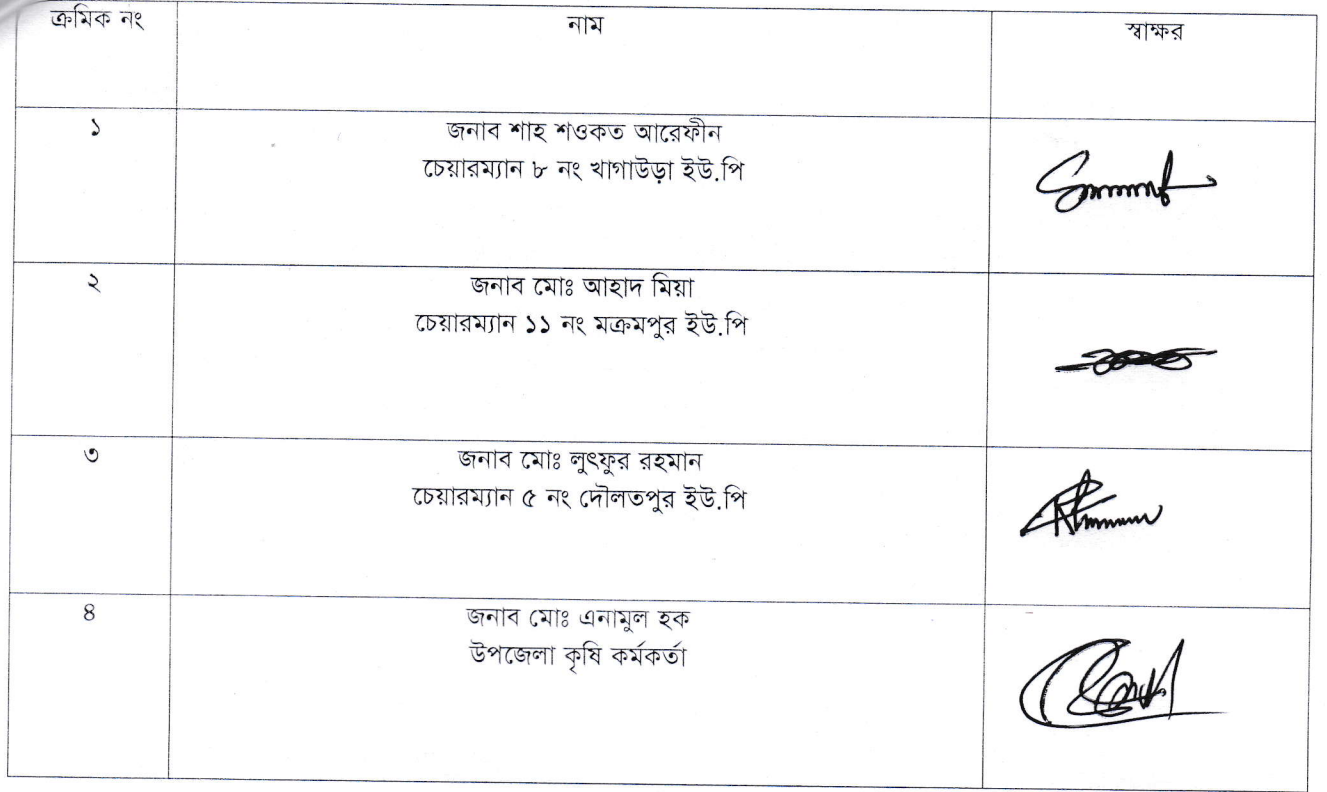 ক্রমিক নং নাম স্বাক্ষর
১ জনাব শাহ শওকত আরেফীন
চেয়ারম্যান ৮ নং খাগাউড়া ইউ.পি
২ জনাব মোঃ আহাদ মিয়া
চেয়ারম্যান ১১ নং মক্রমপুর ইউ.পি
৩ জনাব মোঃ লুৎফুর রহমান
চেয়ারম্যান ৫ নং দৌলতপুর ইউ.পি
৪ জনাব মোঃ এনামুল হক
উপজেলা কৃষি কর্মকর্তা